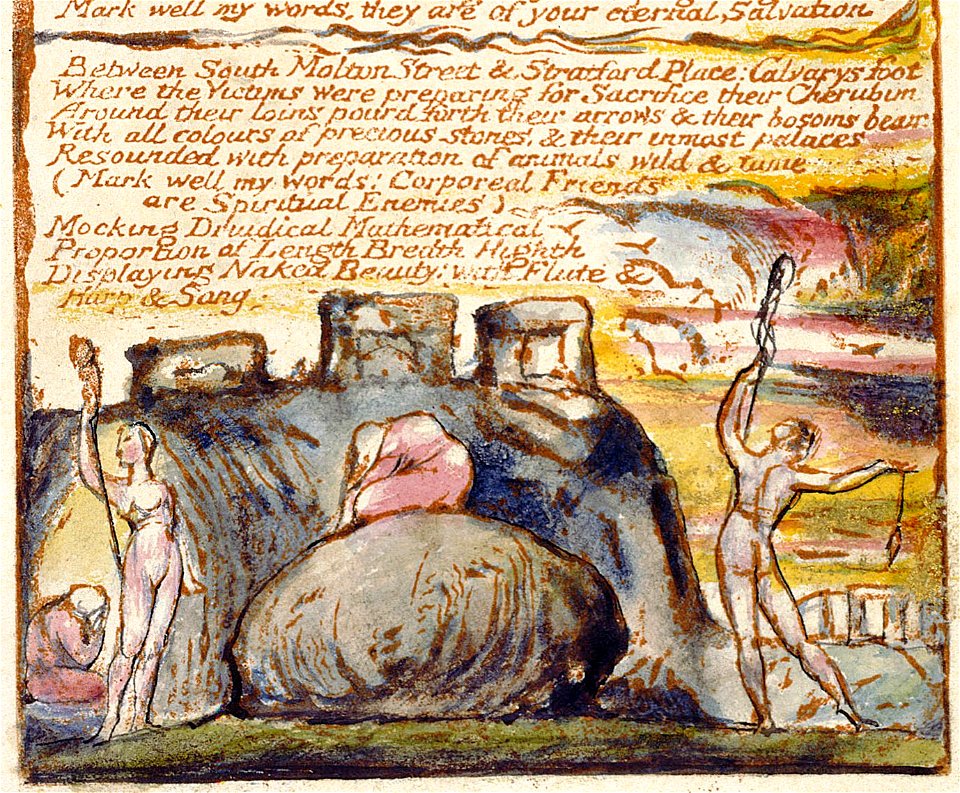 Mark well my words, they are of your eternal Salvation
Between South Molton Street & Stratford Place: Calvarys foot
Where the Victims were preparing for Sacrifice their Cherubim
Around their loins pourd forth their arrows & their bosoms beam
With all colours of precious stones, & their inmost palaces
Resounded with preparation of animals wild & tame
(Mark well my words: Corporeal Friends
are Spiritual Enemies)
Mocking Druidical Mathematical
Proportion of Length Bredth Highth
Displaying Naked Beauty: with Flute &
Harp & Song